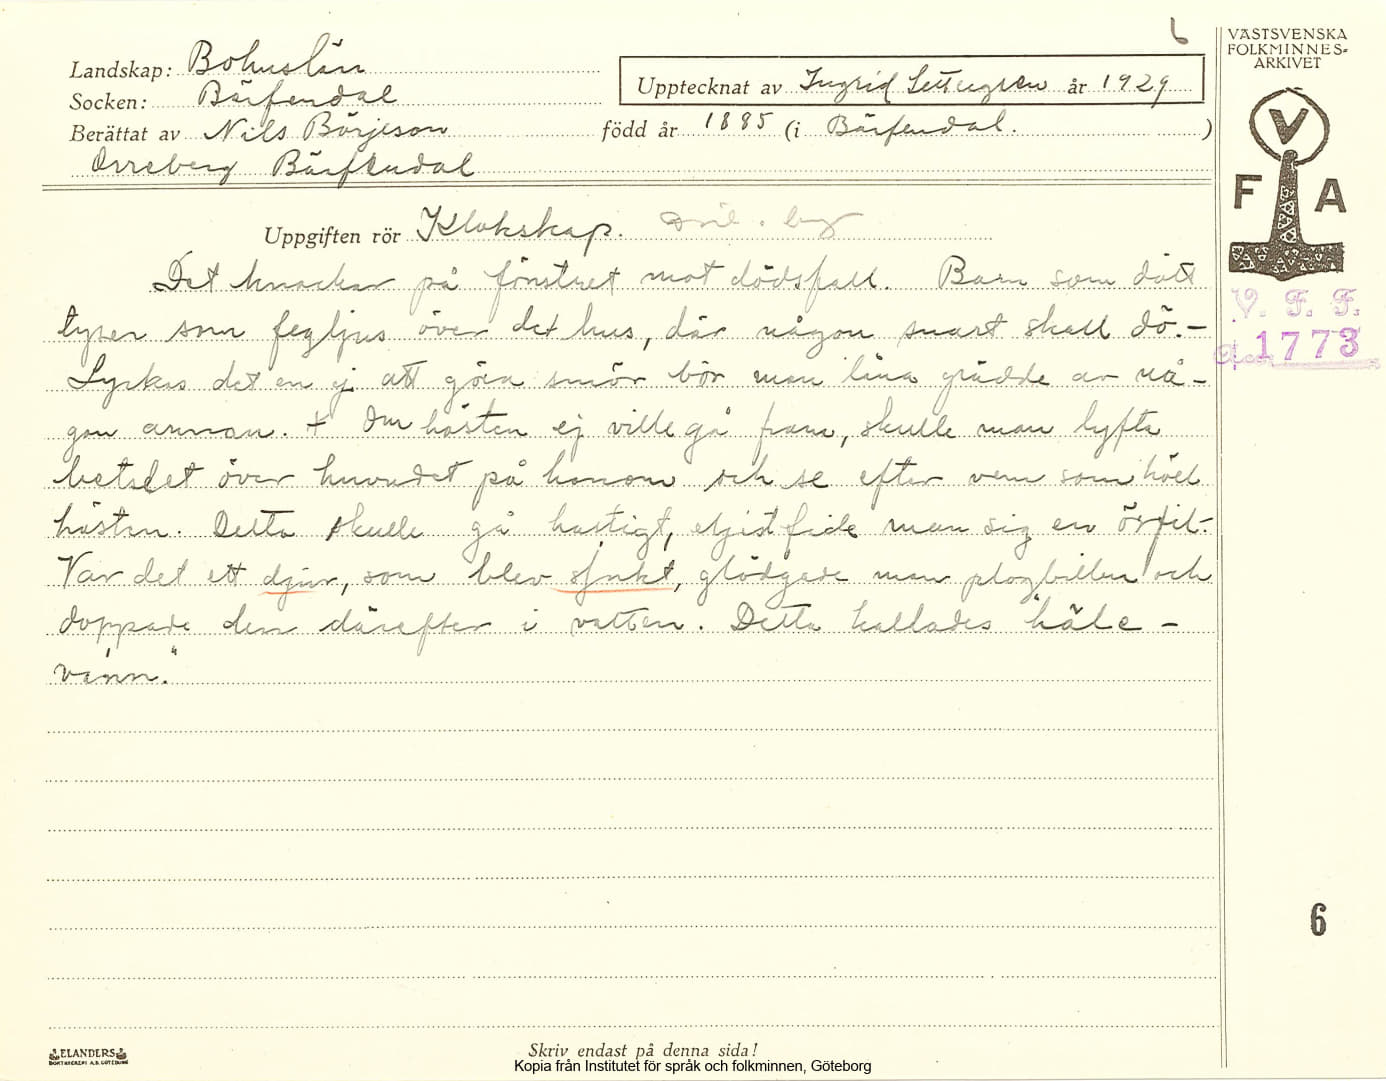 6
VÄSTSVENSKA
FOLKMINNES-
ARKIVET
Landskap: Bohuslän
Socken: Bärfendal
Upptecknat av Ingrid år 1929
Berättat av Nils Börjeson född år 1885 (i Bärfendal. )
Orreberg Bärfendal
V
F A
Uppgiften rör Klokskap.
Det knackar på fönstret mot dödsfall. Barn som dött
lyser som fegljus över det hus, där någon snart skall dö. –
Lyckas det en ej att göra smör bör man låna grädde av nå-
gon annan. + Om hästen ej ville gå fram, skulle man lyfta
betslet över huvudet på honom och se efter vem som höll
hästen. Detta skulle gå hastigt, eljest fick man sig en örfil.
Var det ett djur, som blev sjukt, glödgade man plogbillen och
doppade den därefter i vatten. Detta kallades "håle-
vánn."
V. F. F.
1773
6
ELANDERS
BOKTRYCKERI A.B. GÖTEBORG
Skriv endast på denna sida!
Kopia från Institutet för språk och folkminnen, Göteborg